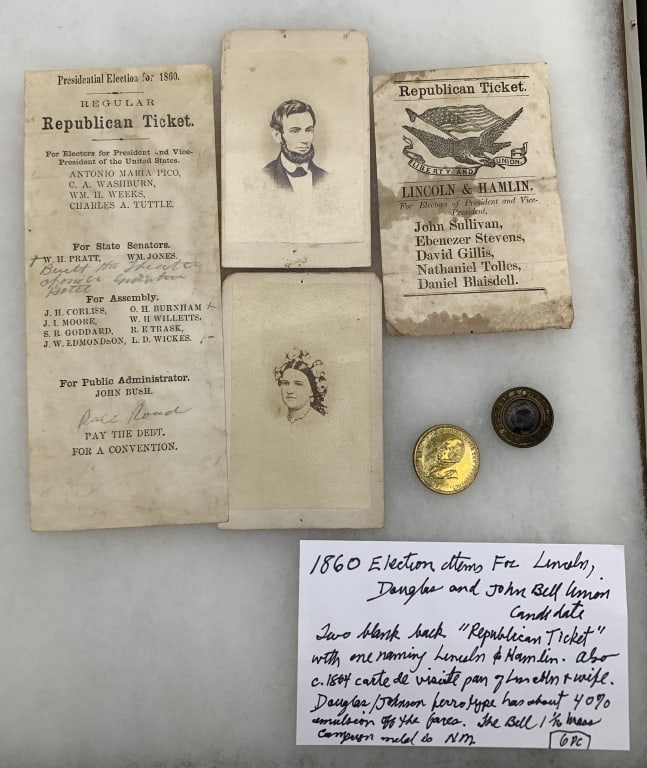 Presidential Election for 1860.
REGULAR
Republican Ticket.
For Electors for President and Vice-
President of the United States.
ANTONIO MARIA PICO,
C. A. WASHBURN,
WM. H. WEEKS,
CHARLES A. TUTTLE.
For State Senators.
W. H. PRATT, WM. JONES.
Built the Theatre
For Assembly.
J. H. CORLISS, O. H. BURNHAM
J. I. MOORE, W. H WILLETTS,
S. R. GODDARD, R. F. TRASK,
J. W. EDMONDSON, L. D. WICKES.
For Public Administrator.
JOHN BUSH.
Rail Road
PAY THE DEBT.
FOR A CONVENTION.
Republican Ticket.
LIBERTY AND UNION.
LINCOLN & HAMLIN.
For Electors of President and Vice-
President,
John Sullivan,
Ebenezer Stevens,
David Gillis,
Nathaniel Tolles,
Daniel Blaisdell.
1860 Election Items For Lincoln,
Douglas and John Bell Union
Candidate
Two blank back "Republican Ticket"
with one naming Lincoln & Hamlin. Also
c. 1864 carte de visite pair of Lincoln & wife.
Douglas/Johnson ferrotype has about 40%
emulsion off the faces. The Bell 1 1/8 brass
campaign medal is N.M.
6 PC